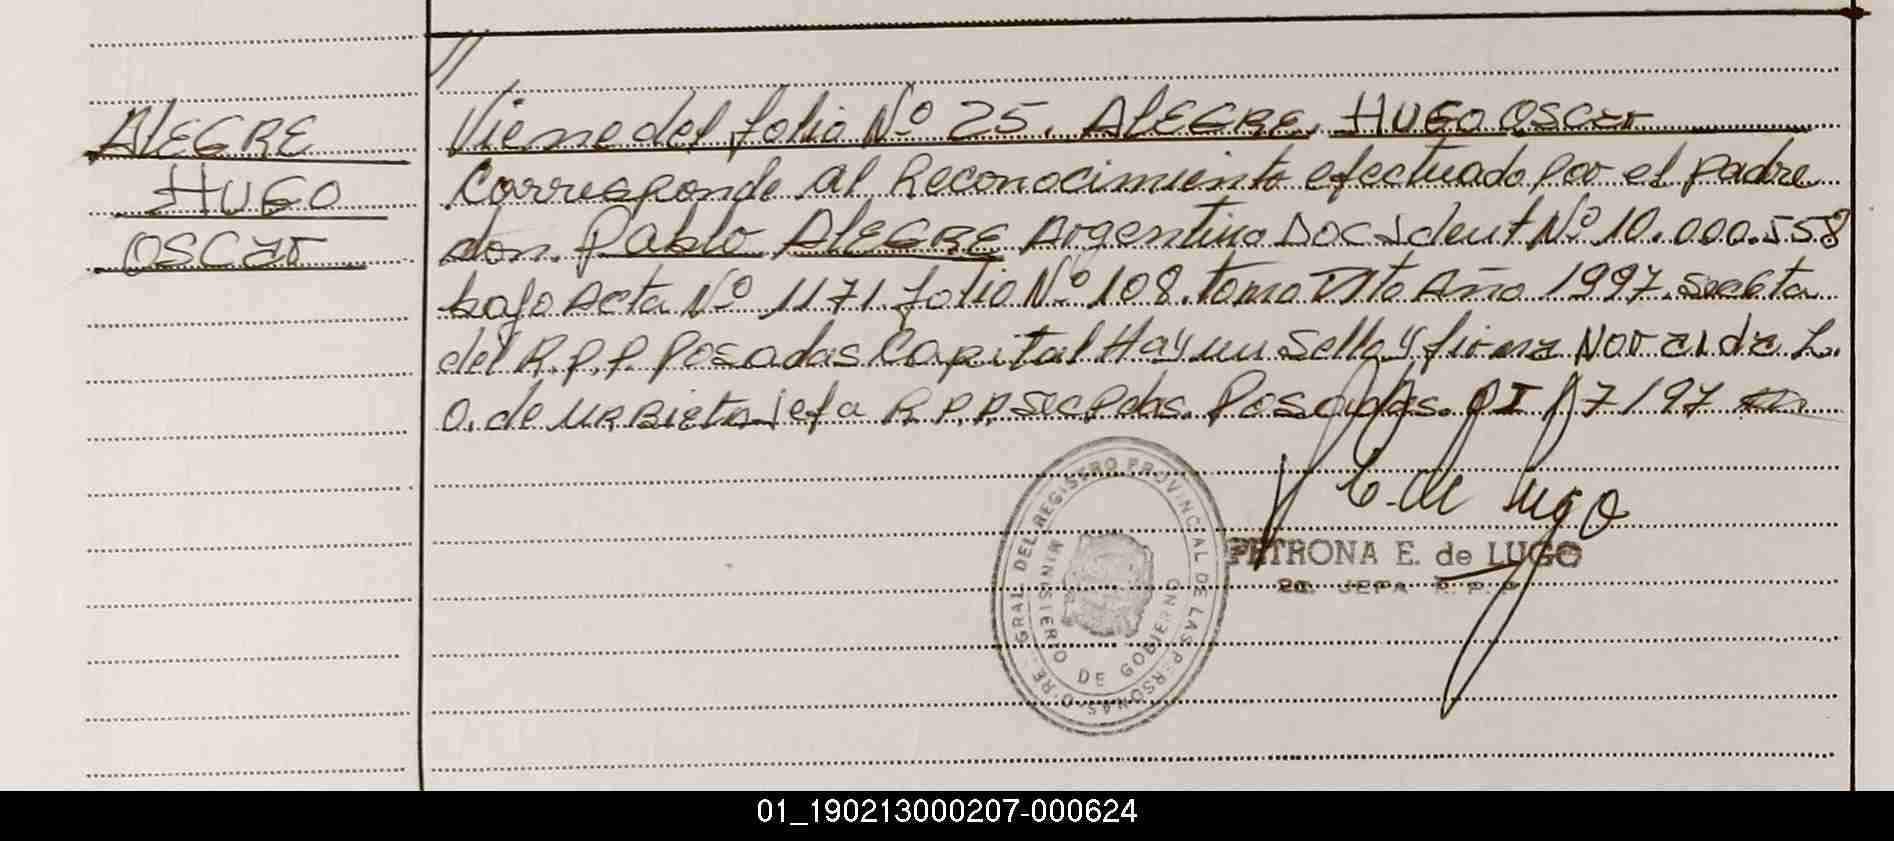 //
ALEGRE
HUGO
OSCAR
Viene del folio Nº 25. ALEGRE, HUGO OSCAR
Corresponde al Reconocimiento efectuado por el padre
don. Pablo ALEGRE Argentino Doc Ident Nº 10.000.558
bajo Acta Nº 1171 folio Nº 108. tomo Año 1997.
del R.P.P. Posadas Capital Hay un sello y firma L.
O. de URBIETA jefa R.P.P. Posadas. 7/97
P E. de Lugo
PETRONA E. de LUGO
JEFA R.P.P.
REGISTRO PROVINCIAL DE LAS PERSONAS
MINISTERIO DE GOBIERNO
01_190213000207-000624